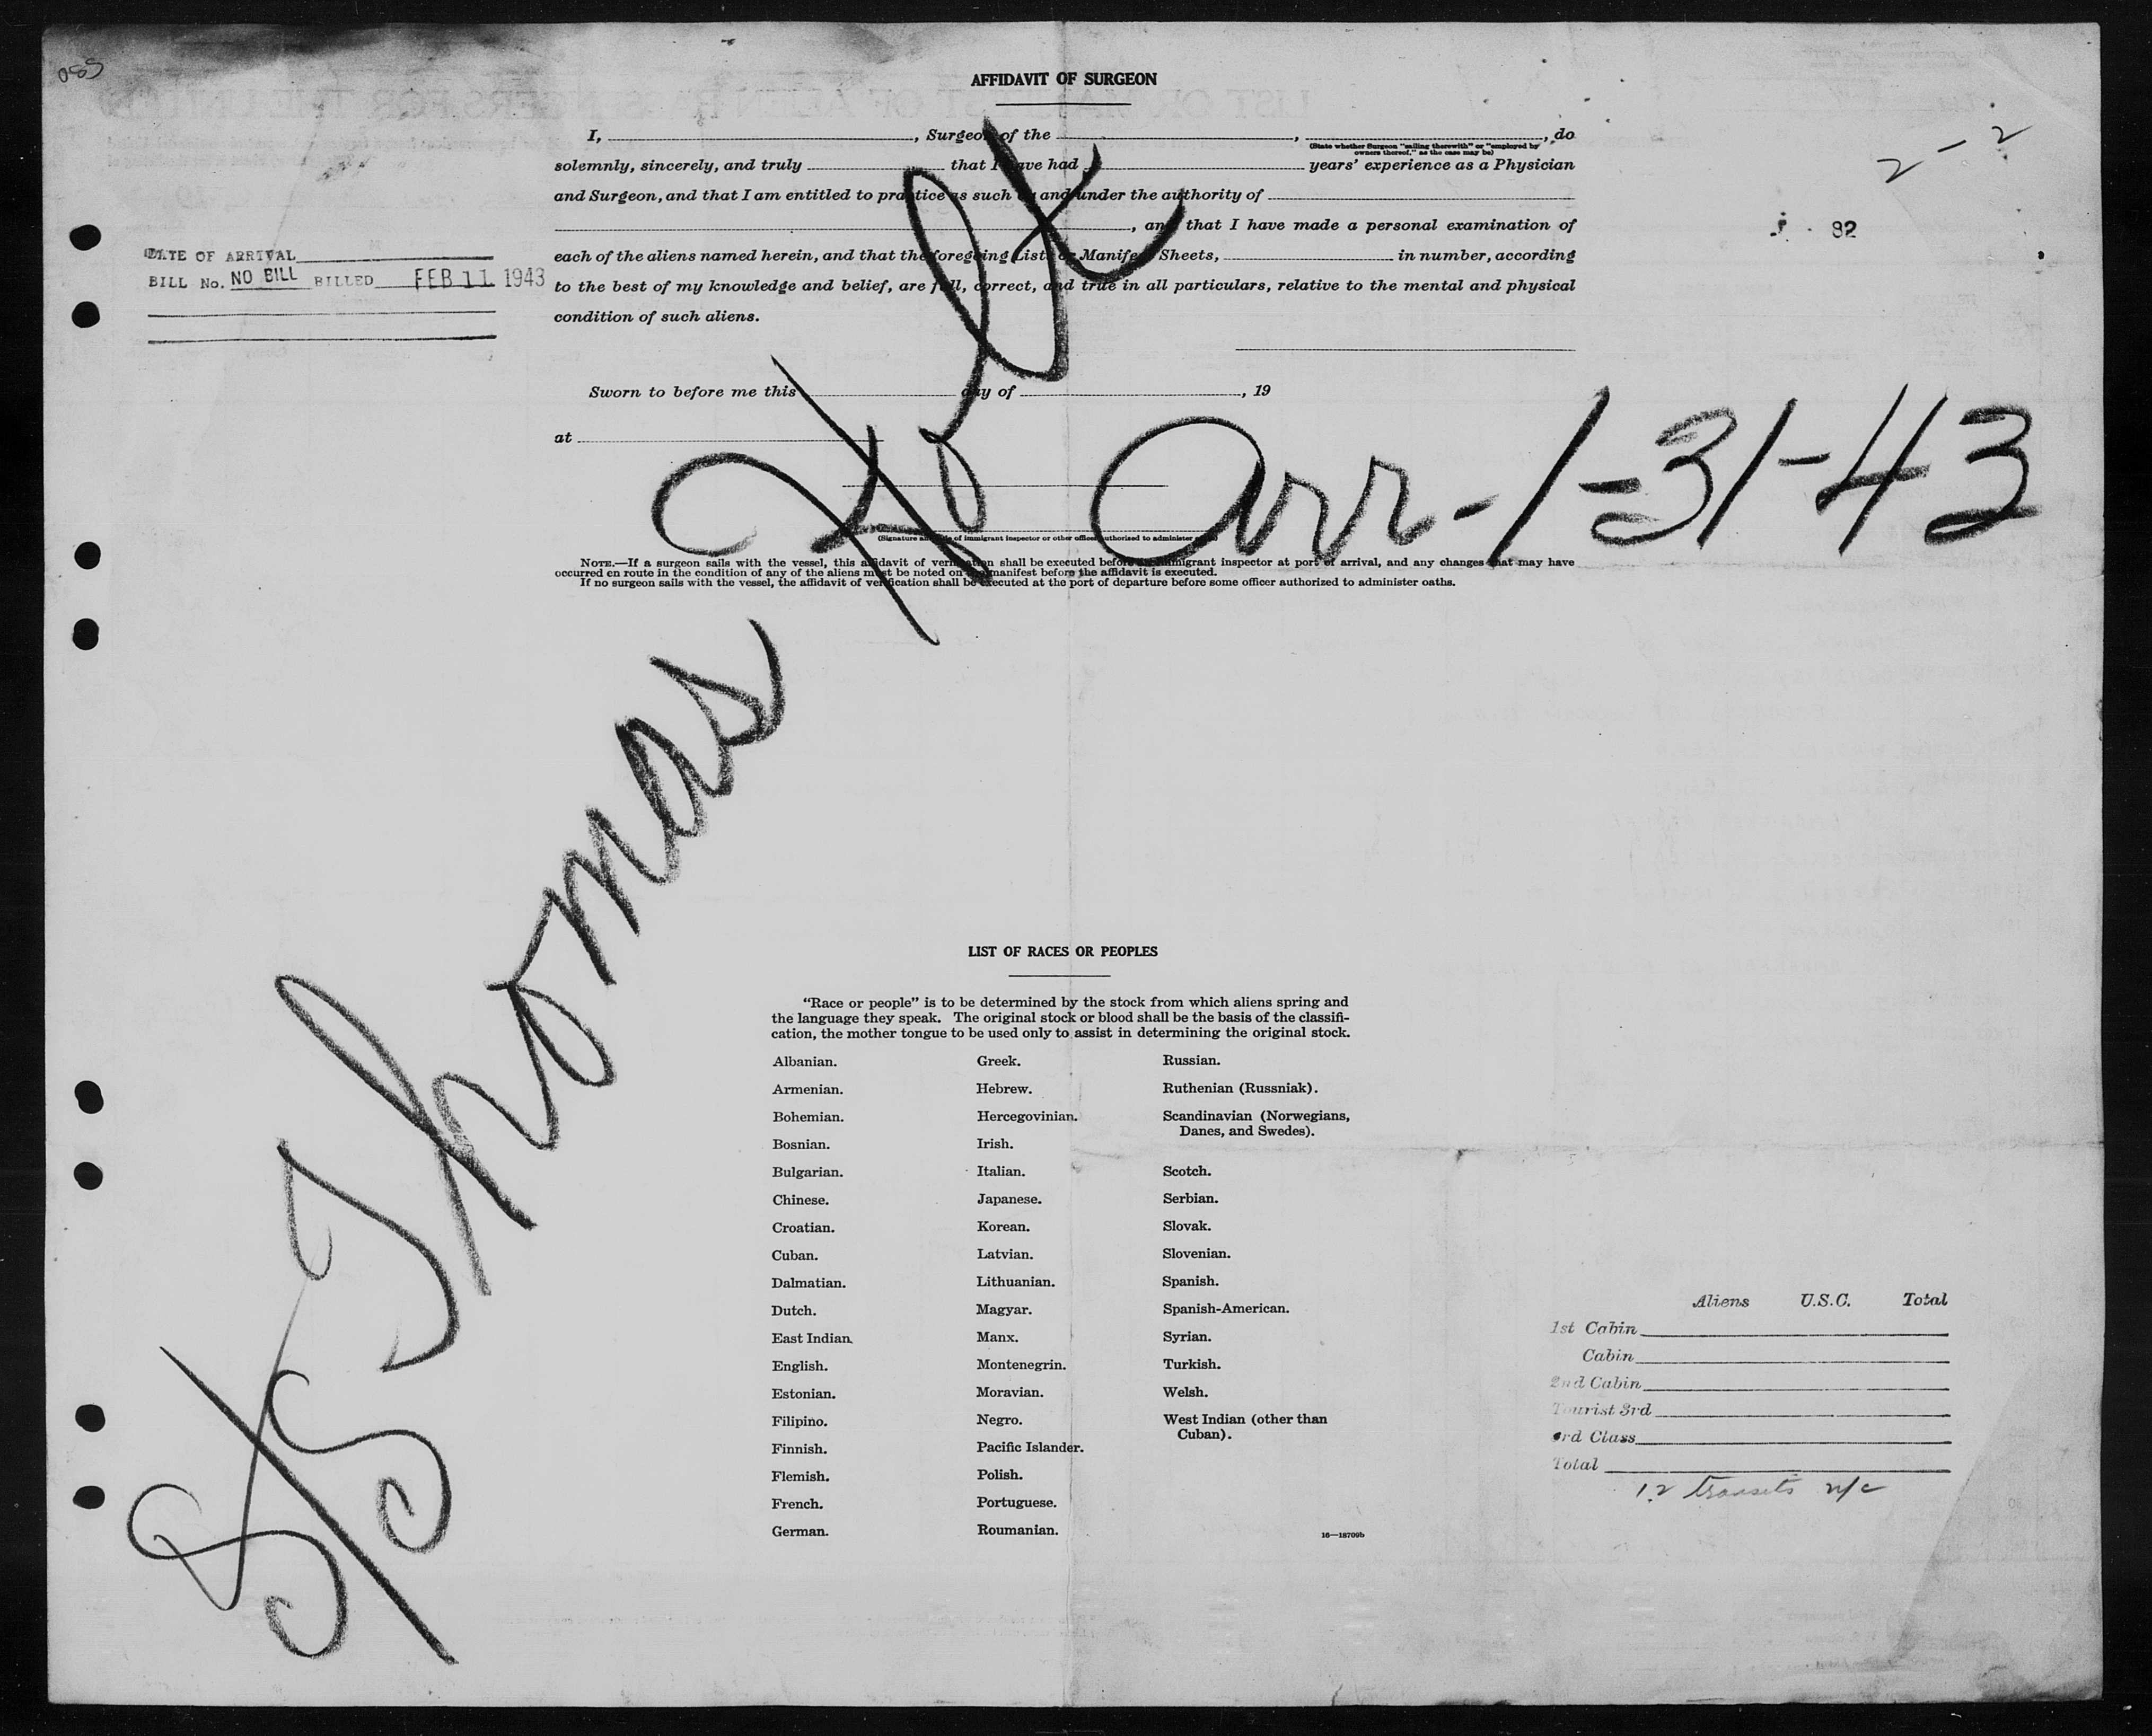 085
AFFIDAVIT OF SURGEON
I, , Surgeon of the , , do
(State whether Surgeon "sailing therewith" or "employed by owners thereof," as the case may be)
solemnly, sincerely, and truly that I have had years' experience as a Physician
and Surgeon, and that I am entitled to practice as such by and under the authority of
, and that I have made a personal examination of
each of the aliens named herein, and that the foregoing Lists or Manifest Sheets, in number, according
to the best of my knowledge and belief, are full, correct, and true in all particulars, relative to the mental and physical
condition of such aliens.
2-2
82
DATE OF ARRIVAL
BILL No. NO BILL BILLED FEB 11 1943
Sworn to before me this day of , 19
at
(Signature and title of immigrant inspector or other officer authorized to administer oaths)
NOTE.—If a surgeon sails with the vessel, this affidavit of verification shall be executed before an immigrant inspector at port of arrival, and any changes that may have
occurred en route in the condition of any of the aliens must be noted on the manifest before the affidavit is executed.
If no surgeon sails with the vessel, the affidavit of verification shall be executed at the port of departure before some officer authorized to administer oaths.
S/S Thomas Holt
Arr-1-31-43
LIST OF RACES OR PEOPLES
"Race or people" is to be determined by the stock from which aliens spring and
the language they speak. The original stock or blood shall be the basis of the classifi-
cation, the mother tongue to be used only to assist in determining the original stock.
Albanian. Greek. Russian.
Armenian. Hebrew. Ruthenian (Russniak).
Bohemian. Hercegovinian. Scandinavian (Norwegians,
Danes, and Swedes).
Bosnian. Irish.
Bulgarian. Italian. Scotch.
Chinese. Japanese. Serbian.
Croatian. Korean. Slovak.
Cuban. Latvian. Slovenian.
Dalmatian. Lithuanian. Spanish.
Dutch. Magyar. Spanish-American.
East Indian. Manx. Syrian.
English. Montenegrin. Turkish.
Estonian. Moravian. Welsh.
Filipino. Negro. West Indian (other than
Cuban).
Finnish. Pacific Islander.
Flemish. Polish.
French. Portuguese.
German. Roumanian.
16—18709b
Aliens U.S.C. Total
1st Cabin
Cabin
2nd Cabin
Tourist 3rd
3rd Class
Total
12 transits n/c